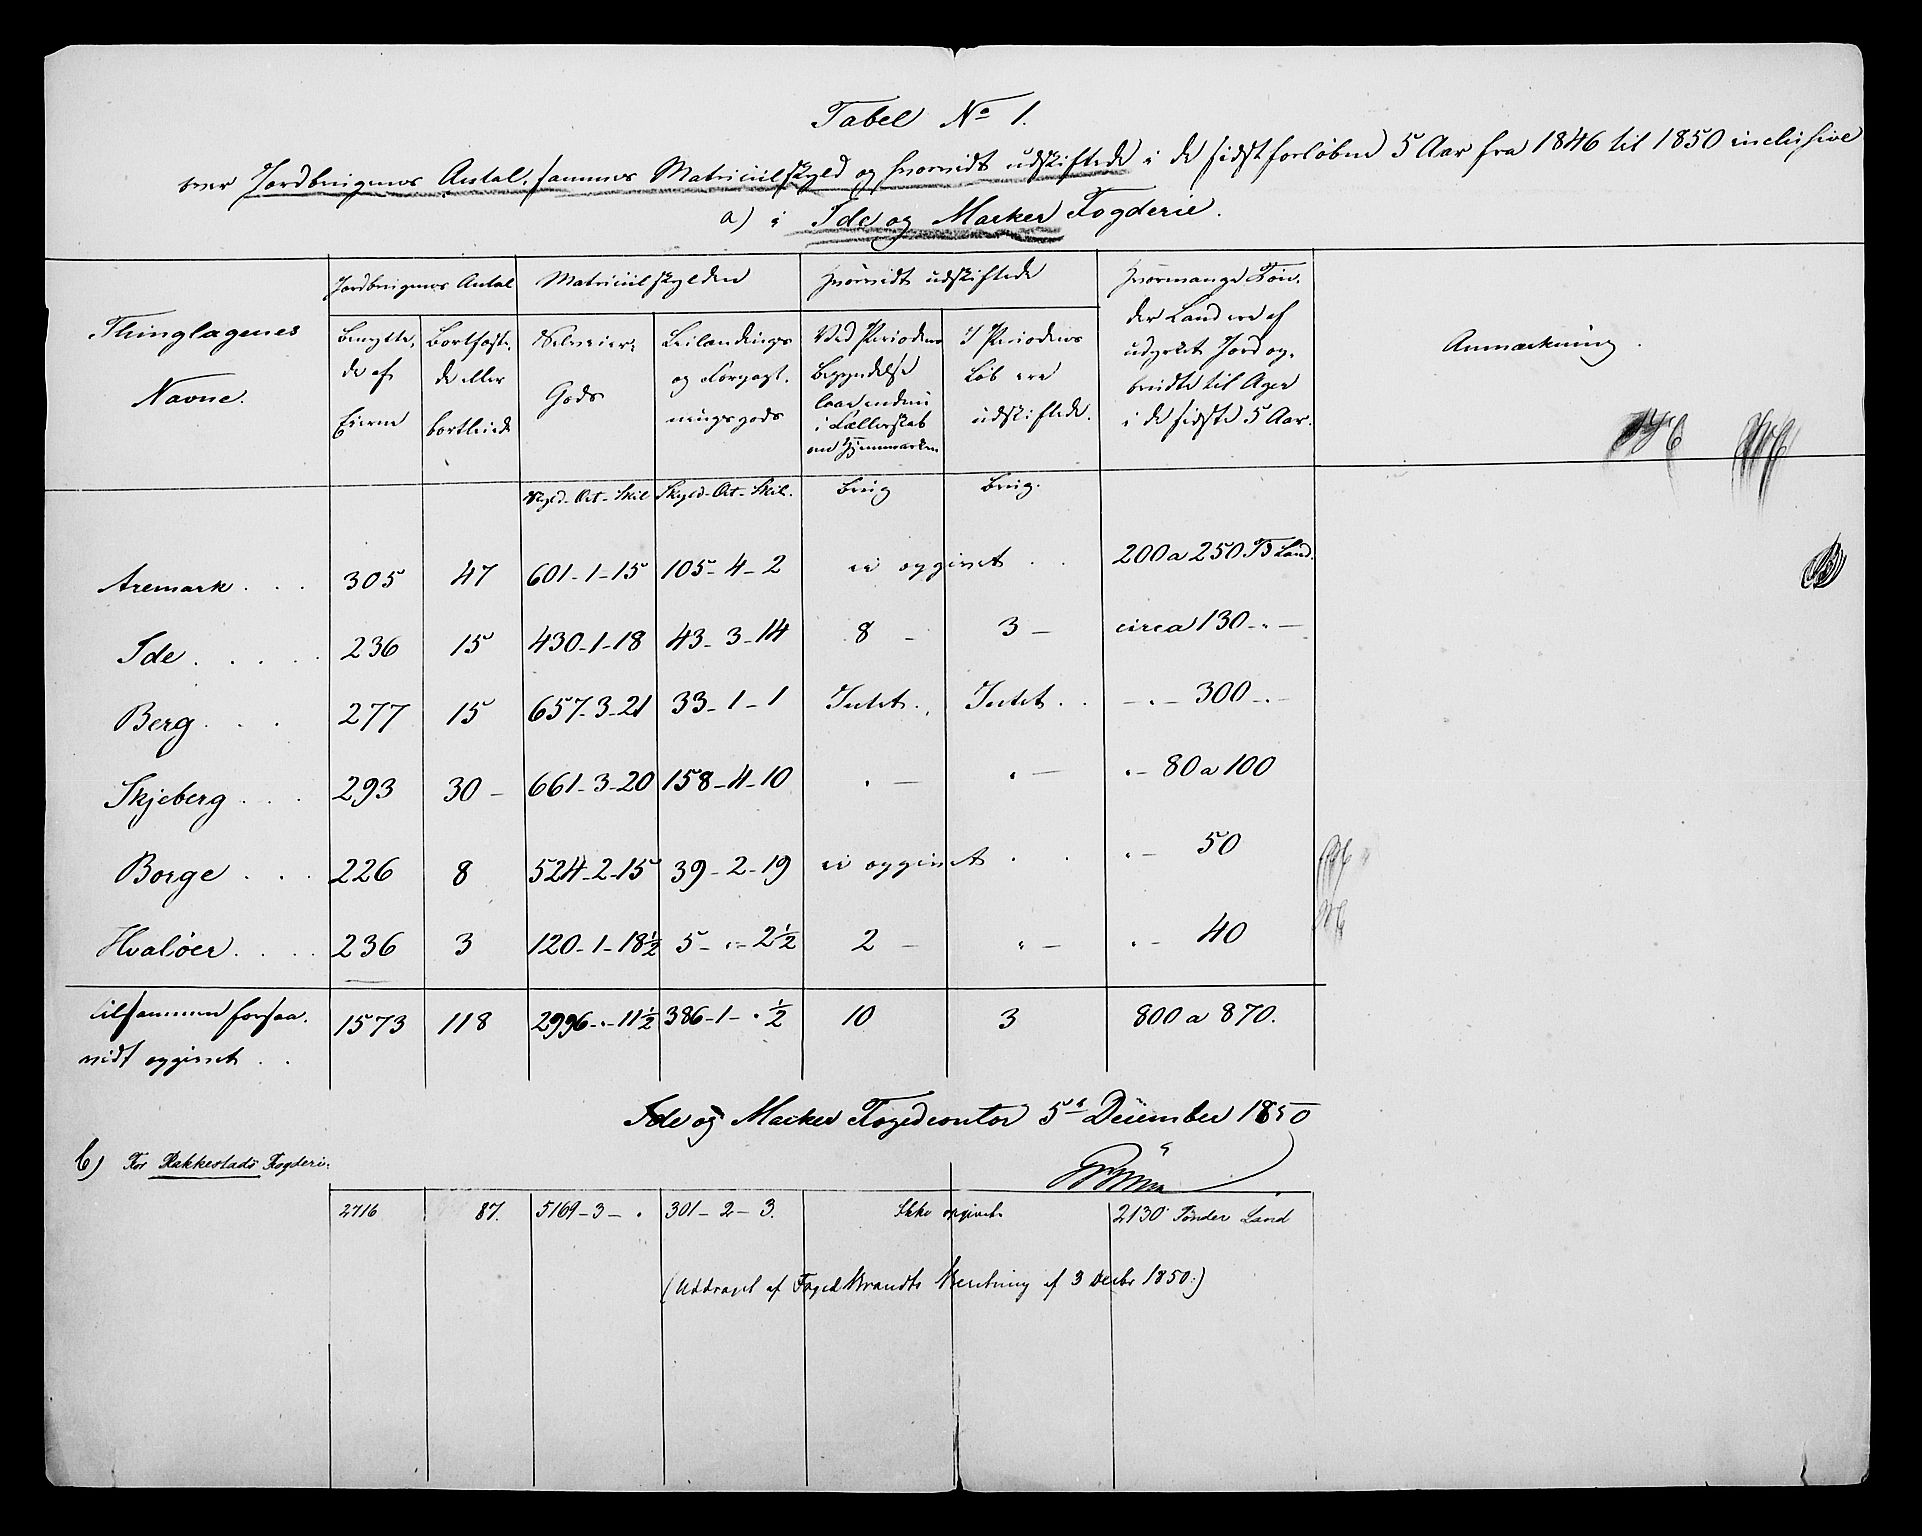 Tabel No 1.
over Jordbrugenes Antal, sammes Matriculskyld og hvorvidt udskiftede i de sidst forløbne 5 Aar fra 1846 til 1850 inclusive
a) i Ide og Marker Fogderie.
Thinglagenes
Navne.
Jordbrugenes Antal
Benytte-
de af
Eierne
Bortfæste-
de eller
bortleiede
Matriculskylden
Selveier-
Gods
Leilændings
og Forpagt-
nings gods
Hvorvidt udskiftede
Ved Periodens
Begyndelse
laae endnu
i Fælleskab
om Hjemmarken
I Periodens
Løb ere
udskiftede.
Hvormange Tøn-
der Land ere af
udyrket Jord op-
brudte til Ager
i de sidste 5 Aar.
Anmærkning.
Skyld-Ort-Skil Skyld-Ort-Skil. Brug Brug.
Aremark . . . 305 47 601-1-15 105-4-2 ei opgivet . . 200 a 250 Td Land.
Ide . . . . . 236 15 430-1-18 43-3-14 8 - 3 - circa 130 -"-
Berg . . . 277 15 657-3-21 33-1-1 Intet . . Intet . . -"- 300 -"-
Skjeberg . . . 293 30 - 661-3-20 158-4-10 " - " - "- 80 a 100
Borge . . . 226 8 524-2-15 39-2-19 ei opgivet . . "- 50
Hvaløer . . . . 236 3 120-1-18½ 5-"-2½ 2 - " - "- 40
tilsammen forsaa-
vidt opgivet . . 1573 118 2996-"-11½ 386-1-"½ 10 3 800 a 870.
Ide og Marker Fogedcontor 5te December 1850
b) For Rakkestads Fogderi:
2716 87. 5169-3-" 301-2-3. Ikke opgivet. 2130 Tønder Land
(Uddraget af Foged Brandts Beretning af 3 Decbr 1850.)